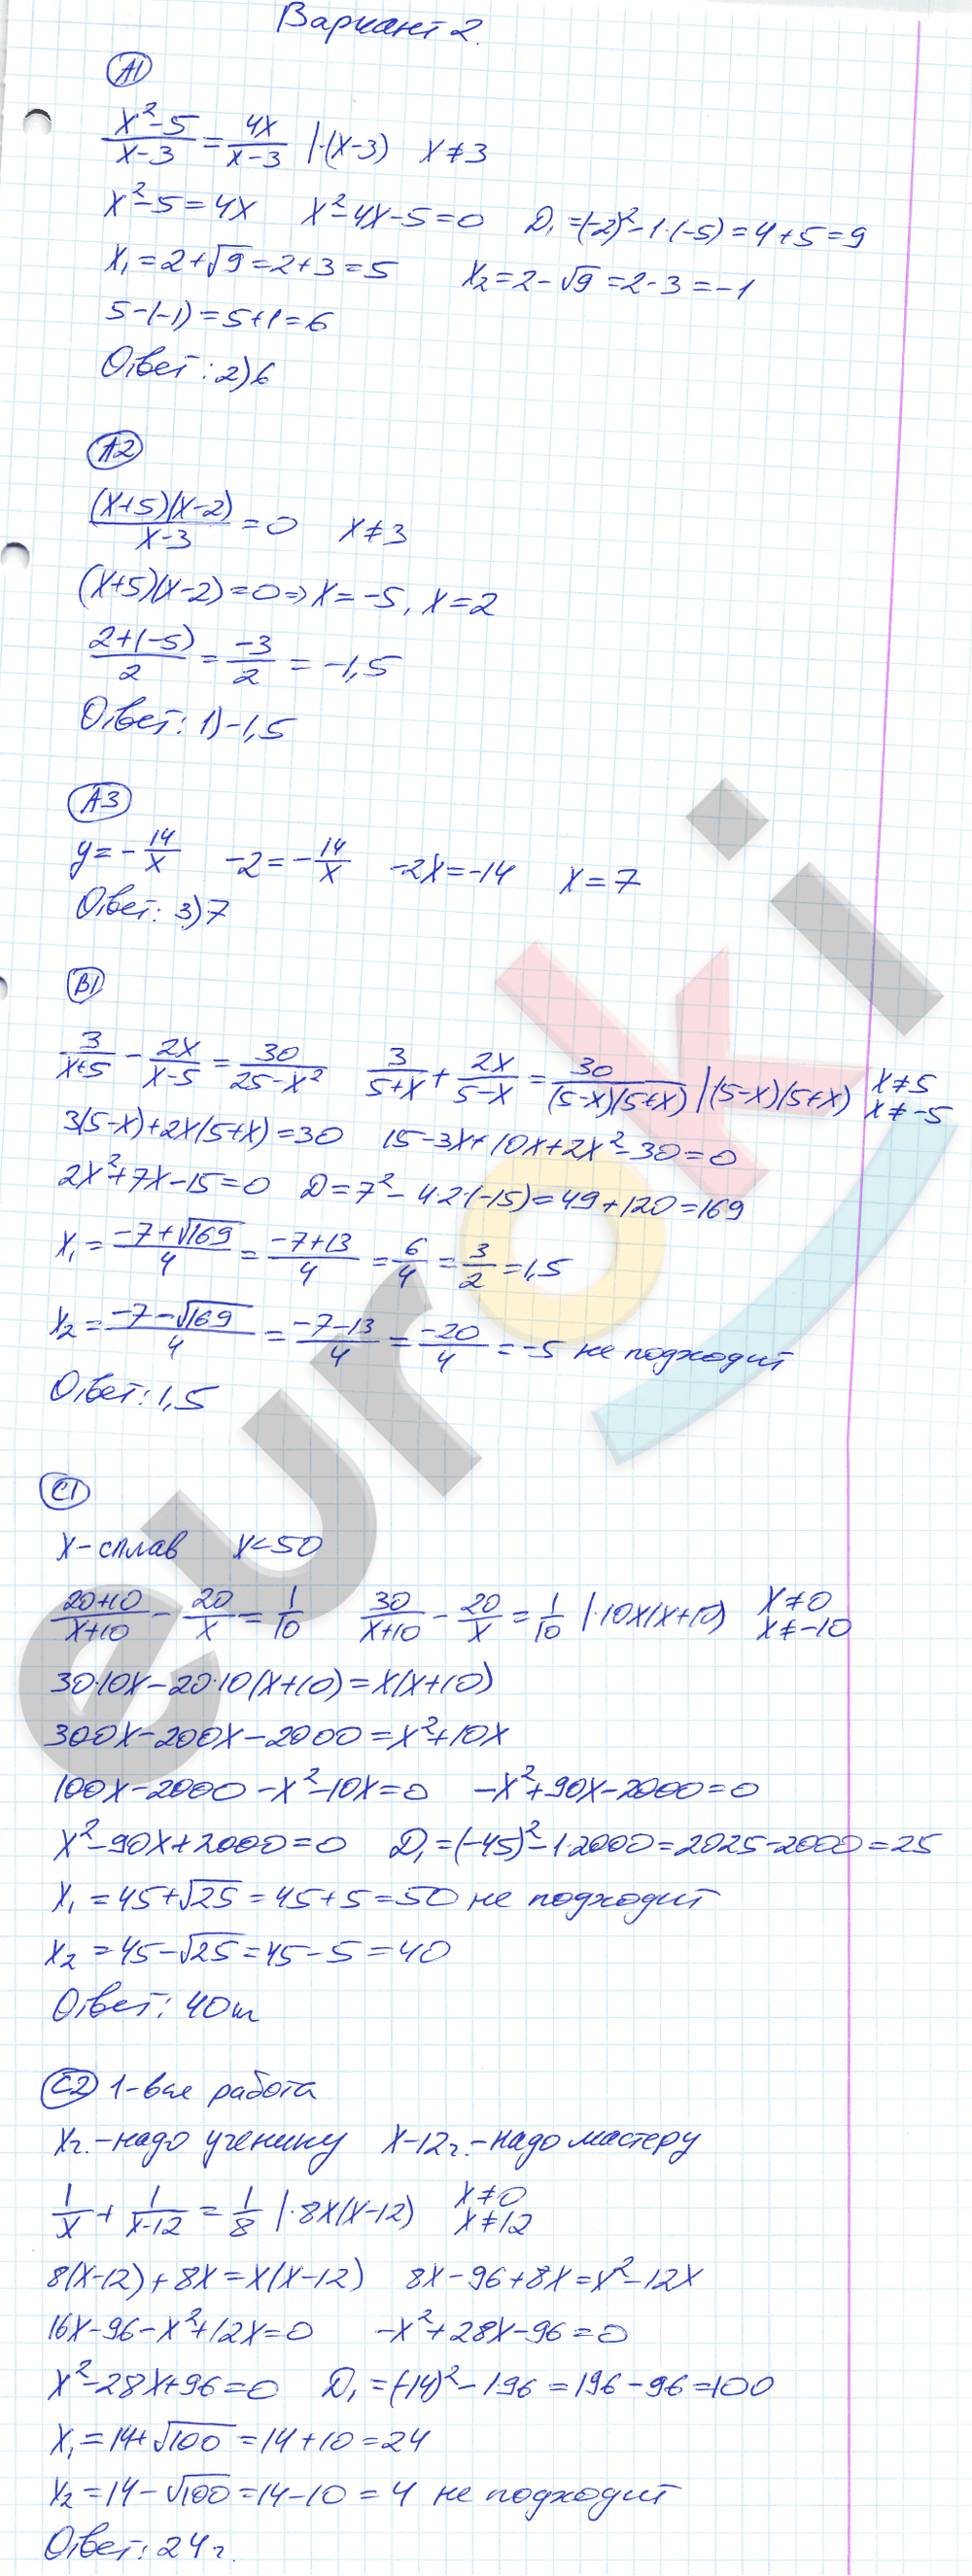 Вариант 2.
А1
(x²-5)/(x-3) = 4x/(x-3) |·(x-3) x≠3
x²-5=4x x²-4x-5=0 D₁=(-2)²-1·(-5)=4+5=9
x₁=2+√9=2+3=5 x₂=2-√9=2-3=-1
5-(-1)=5+1=6
Ответ: 2)6
А2
((x+5)(x-2))/(x-3) = 0 x≠3
(x+5)(x-2)=0⇒x=-5, x=2
(2+(-5))/2 = -3/2 = -1,5
Ответ: 1)-1,5
А3
y=-14/x -2=-14/x -2x=-14 x=7
Ответ: 3)7
В1
3/(x+5) - 2x/(x-5) = 30/(25-x²) 3/(5+x) + 2x/(5-x) = 30/((5-x)(5+x)) |·(5-x)(5+x) x≠5 x≠-5
3(5-x)+2x(5+x)=30 15-3x+10x+2x²-30=0
2x²+7x-15=0 D=7²-4·2·(-15)=49+120=169
x₁=(-7+√169)/4=(-7+13)/4=6/4=3/2=1,5
x₂=(-7-√169)/4=(-7-13)/4=-20/4=-5 не подходит
Ответ: 1,5
С1
x-сплав x<50
(20+10)/(x+10) - 20/x = 1/10 30/(x+10) - 20/x = 1/10 |·10x(x+10) x≠0 x≠-10
30·10x-20·10(x+10)=x(x+10)
300x-200x-2000=x²+10x
100x-2000-x²-10x=0 -x²+90x-2000=0
x²-90x+2000=0 D₁=(-45)²-1·2000=2025-2000=25
x₁=45+√25=45+5=50 не подходит
x₂=45-√25=45-5=40
Ответ: 40т
С2 1-вся работа
xч.-надо ученику x-12ч.-надо мастеру
1/x + 1/(x-12) = 1/8 |·8x(x-12) x≠0 x≠12
8(x-12)+8x=x(x-12) 8x-96+8x=x²-12x
16x-96-x²+12x=0 -x²+28x-96=0
x²-28x+96=0 D₁=(-14)²-1·96=196-96=100
x₁=14+√100=14+10=24
x₂=14-√100=14-10=4 не подходит
Ответ: 24ч.
euroki